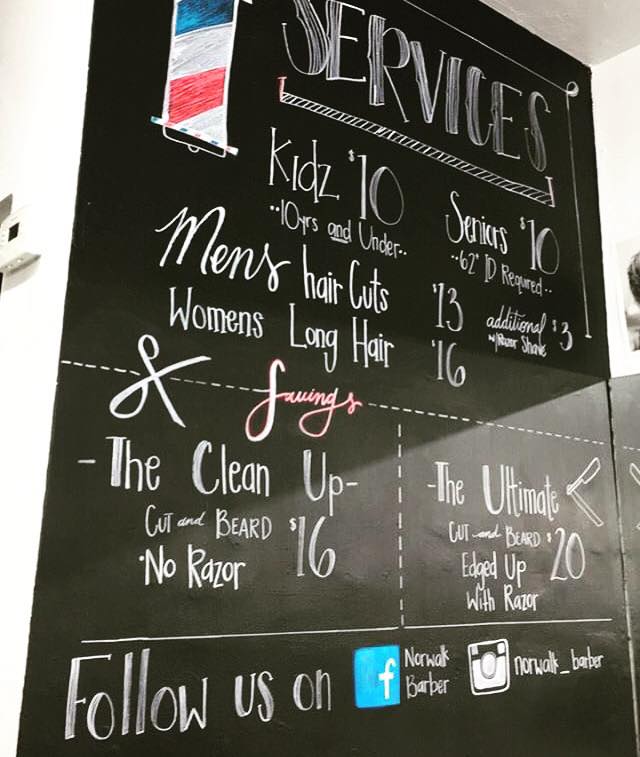 SERVICES
Kidz $10
··10yrs and Under··
Seniors $10
··62+ ID Required··
Mens hair Cuts $13
additional $3
w/Razor Shave
Womens Long Hair $16
& Savings
-The Clean Up-
CUT and BEARD $16
·No Razor
-The Ultimate
CUT and BEARD $20
Edged Up
With Razor
Follow us on
f
Norwalk
Barber
norwalk_barber